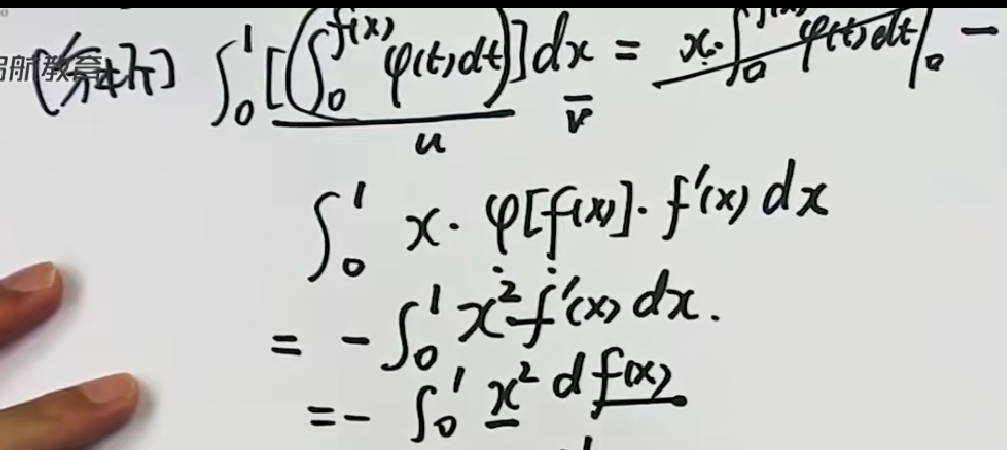 启航教育
[分析] ∫₀¹ [(∫₀^{f(x)} φ(t)dt)] dx = x·∫₀^{f(x)} φ(t)dt |₀ −
u v
∫₀¹ x·φ[f(x)]·f'(x) dx
= −∫₀¹ x² f'(x) dx.
= − ∫₀¹ x² d f(x)